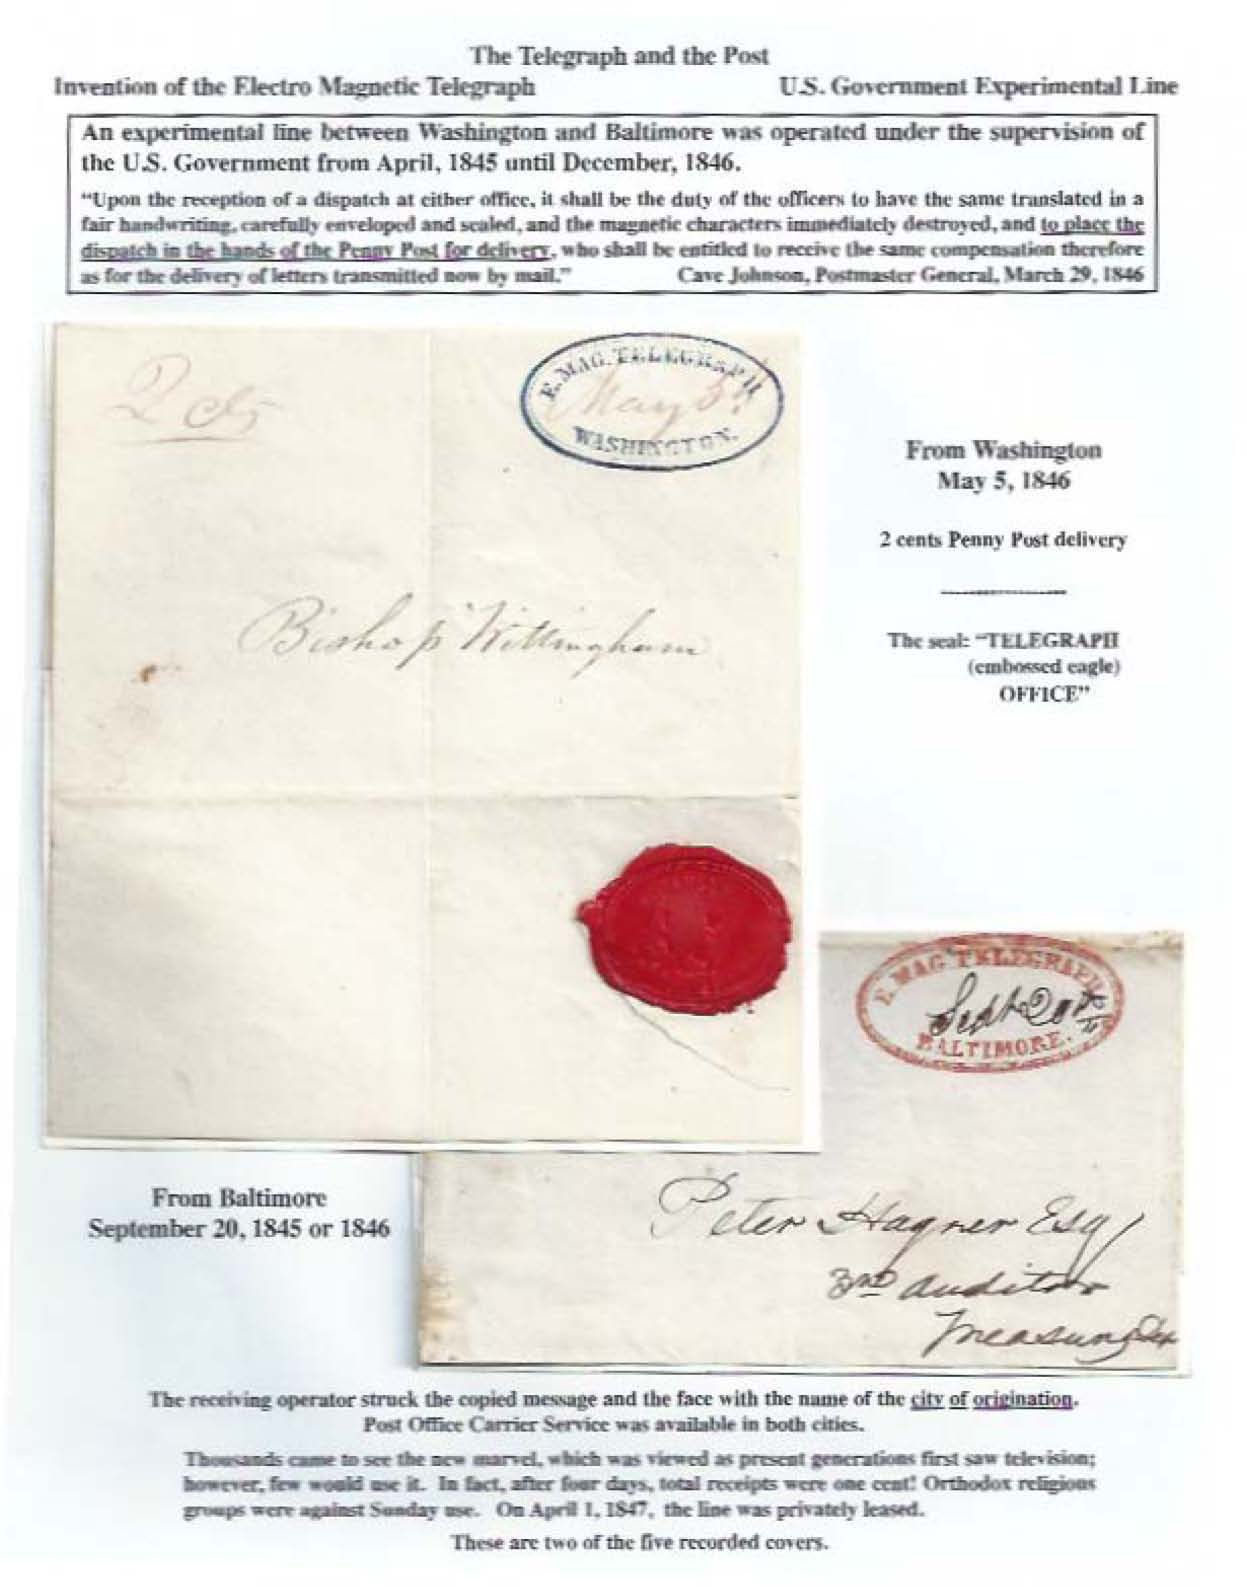 The Telegraph and the Post
Invention of the Electro Magnetic Telegraph
U.S. Government Experimental Line
An experimental line between Washington and Baltimore was operated under the supervision of
the U.S. Government from April, 1845 until December, 1846.
“Upon the reception of a dispatch at either office, it shall be the duty of the officers to have the same translated in a
fair handwriting, carefully enveloped and sealed, and the magnetic characters immediately destroyed, and to place the
dispatch in the hands of the Penny Post for delivery, who shall be entitled to receive the same compensation therefore
as for the delivery of letters transmitted now by mail.”
Cave Johnson, Postmaster General, March 29, 1846
2 cts
E. MAG. TELEGRAPH
May 5th
WASHINGTON.
Bishop Wittingham
From Washington
May 5, 1846
2 cents Penny Post delivery
The seal: “TELEGRAPH
(embossed eagle)
OFFICE”
E. MAG TELEGRAPH
Sept 20th
BALTIMORE.
Peter Hagner Esq
3rd auditor
Treasury Dep
From Baltimore
September 20, 1845 or 1846
The receiving operator struck the copied message and the face with the name of the city of origination.
Post Office Carrier Service was available in both cities.
Thousands came to see the new marvel, which was viewed as present generations first saw television;
however, few would use it. In fact, after four days, total receipts were one cent! Orthodox religious
groups were against Sunday use. On April 1, 1847, the line was privately leased.
These are two of the five recorded covers.